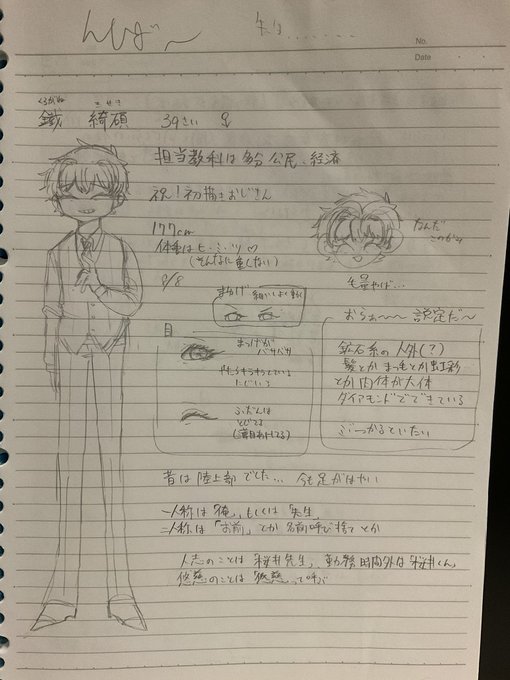 んしょ〜
先生.......
No.
Date
くろがね
鐵 綺碩 39さい
担当教科は多分 公民、経済
祝!初描きおじさん
177cm
体重はヒ・ミ・ツ♡
(そんなに重くない)
8/8
なんだ
このガキ
毛量やば…
まゆげ 細かいしよく動く
目
まつげが
バサバサ
やたらキラキラしている
にじいろ
ふだんは
とじてる
(薄目あいてる)
おらぁ〜〜 設定だ〜
鉱石系の人外(?)
髪とかまつ毛とか虹彩
とか肉体が大体
ダイアモンドでできている
ぶつかるといたい
昔は陸上部でした… 今も足がはやい
一人称は「俺」、もしくは「先生」
二人称は「お前」とか名前呼び捨てとか
人志のことは「桜井先生」、勤務時間外は「桜井くん」
悠慈のことは「悠慈」って呼ぶ